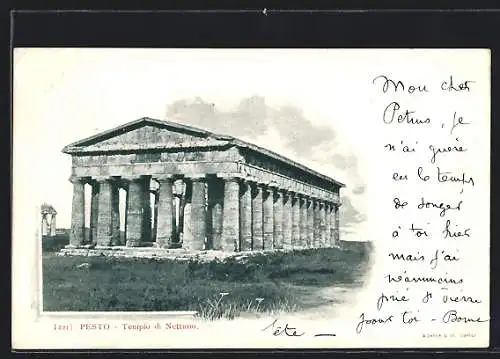 Mon cher
Petrus, je
n'ai guère
eu le temps
de songer
à toi hier
mais j'ai
néanmoins
prié St Pierre
pour toi - Bonne
fête -
1221) PESTO - Tempio di Nettuno.